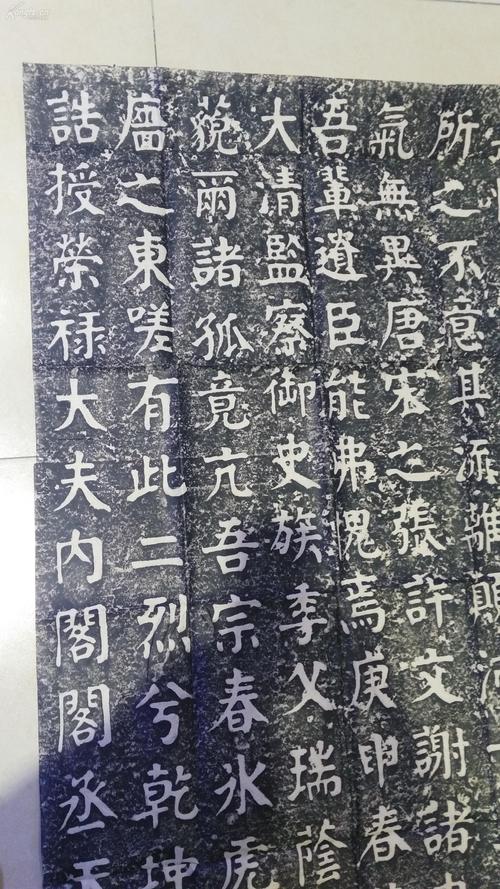 所之不意其流離顛
氣無異唐宋之張許文謝諸
吾輩遺臣能弗愧焉庚申春
大清監察御史族季父瑞蔭
藐爾諸孤竟亢吾宗春冰虎
廧之東嗟有此二烈兮乾坤
誥授榮禄大夫内閣閣丞天